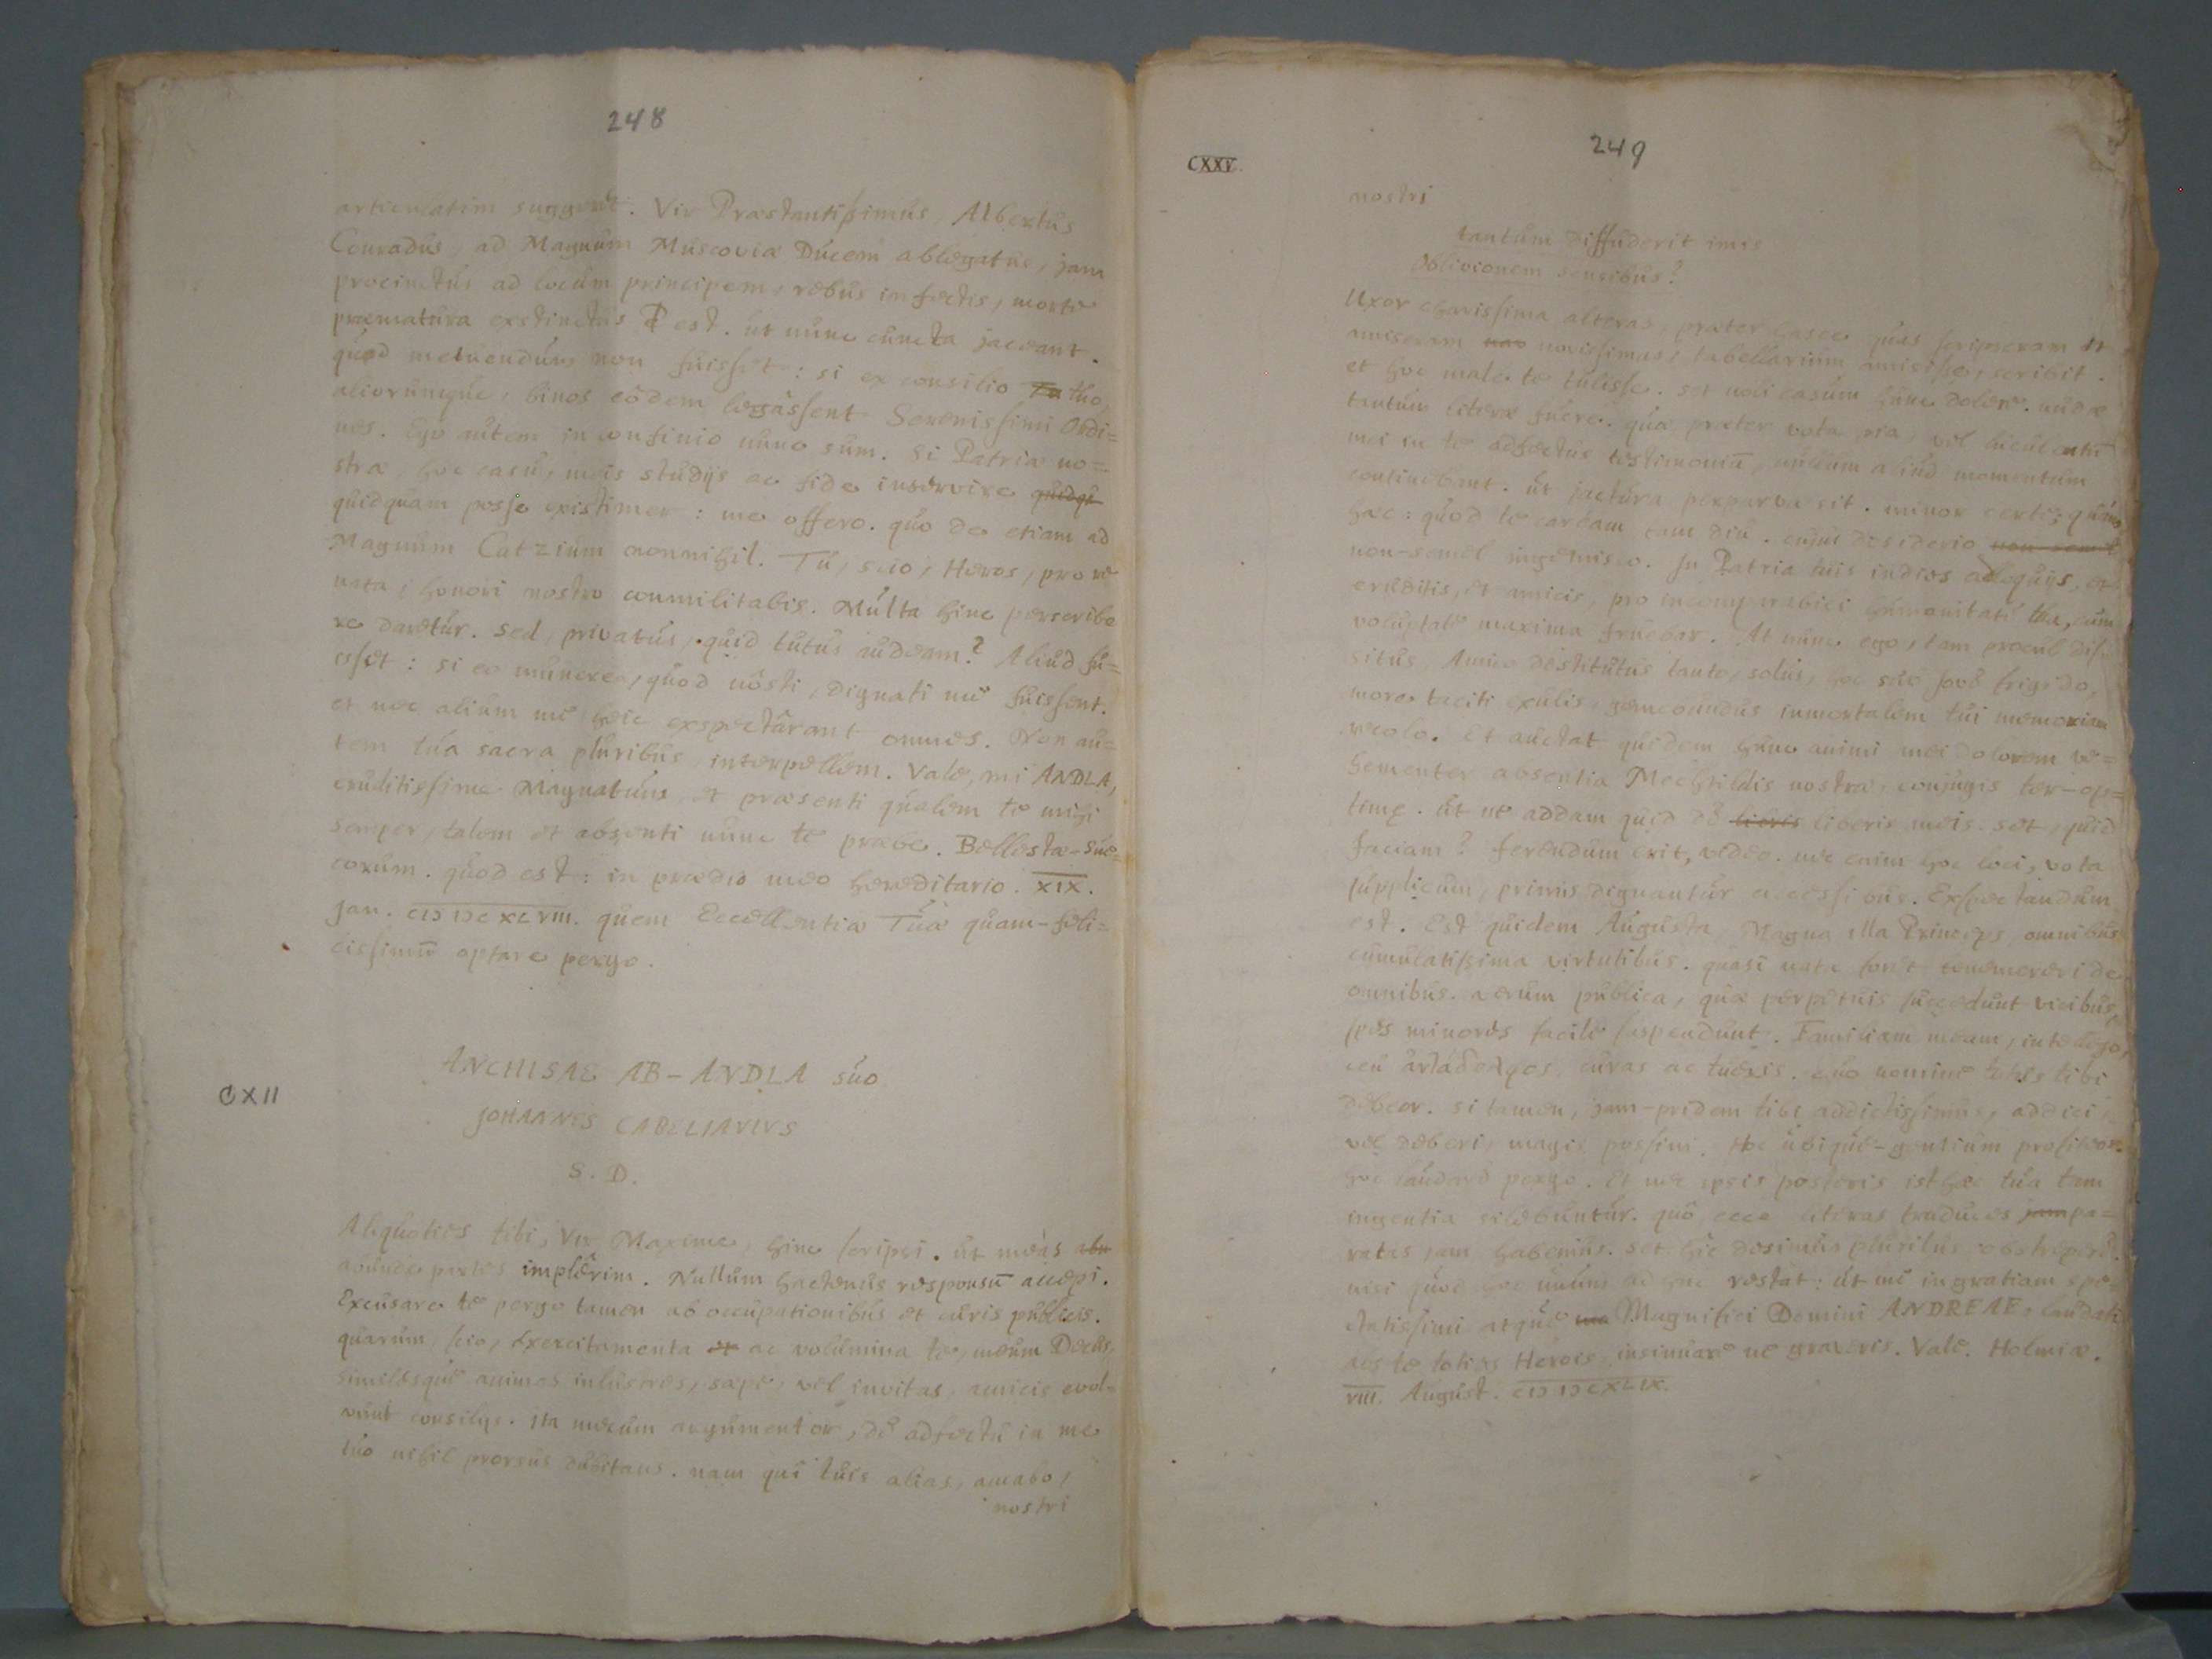 248
articulatim suggeret. Vir Præstantissimus, Albertus
Conradus, ad Magnum Muscoviæ Ducem ablegatus, jam
procinctus ad locum principem, rebus infectis, morte
præmatura exstinctus est. ut nunc cuncta jaceant.
quod metuendum non fuisset: si ex consilio tuo,
aliorumque, binos eodem legassent Serenissimi Ordi=
nes. Ego autem in confinio nunc sum. Si Patriæ no=
stræ, hoc casu, meis studijs ac fide inservire quidqu
quidquam posse existimer: me offero. quo de etiam ad
Magnum Catzium nonnihil. Tu, scio, Heros, pro re
nata, honori nostro conmilitabis. Multa hinc perscribe
re daretur. sed, privatus, quid tutus audeam? Aliud fu=
isset: si eo munere, quod nosti, dignati me fuissent.
et nec alium me heic exspectarant omnes. Non au=
tem tua sacra pluribus interpellem. Vale, mi ANDLA,
eruditissime Magnatum, et præsenti qualem te mihi
semper, talem et absenti nunc te præbe. Bellesta-Sue=
corum. quod est: in prædio meo hereditario. XIX.
Jan. CIↃ IↃC XLVIII. quem Excellentiæ Tuæ quam-feli=
cissimū optare pergo.
CXII
ANCHISAE AB-ANDLA suo
JOHANNES CABELIAVIVS
S. D.
Aliquoties tibi, Vir Maxime, hinc scripsi. ut meas abu
abunde partes implerim. Nullum hactenus responsū accepi.
Excusare te pergo tamen ab occupationibus et curis publicis.
quarum, scio, exercitamenta et ac volumina te, meum Decus,
similesque animas inlustres, sæpe, vel invitas, amicis evol=
vunt consilijs. ita mecum argumentor, de adfectu in me
tuo nihil prorsus dubitans. nam qui tuis alias, amabo,
nostri
249
CXXV.
nostri
tantum diffuderit imis
Oblivionem sensibus?
Uxor charissima alteras, præter hasce quas scripseram et
amiseram novissimas, tabellarium amisisse, scribit.
et hoc male te tulisse. set noli casum hunc dolere. nudæ
tantum literæ fuere. quæ præter vota pia, vel luculentū
mei in te adfectus testimoniū, nullum aliud momentum
continebant. ut jactura perparva sit. minor certe, quam
hæc: quod te caream tam diu. cujus desiderio non semel
non-semel ingemisco. In Patria tuis indies adloquijs, et
eruditis, et amicis, pro incomparabili humanitate tua, cum
voluptate maxima fruebar. At nunc ego, tam procul dis
situs, Amico destitutus tanto, solus, hoc sub Jove frigido,
more taciti exulis, gemebundus inmortalem tui memoriam
recolo. et auctat quidem hunc animi mei dolorem ve=
hementer absentia Mechtildis nostræ, conjugis ter-op=
timę. ut ne addam quid de liberis meis. set, quid
faciam? ferendum erit, video. nec enim hoc loci, vota
supplicum, primis dignantur accessionis. Exspectandum
est. Est quidem Augusta, Magna illa Princeps, omnibus
cumulatissima virtutibus. quasi nata foret bene mereri de
omnibus. verum publica, quæ perpetuis succedunt vicibus,
spes minores facile suspendunt. Familiam meam, intellego,
ceu curas ac tueris. quo nomine totus tibi
debeor. si tamen, jam-pridem tibi addictissimus, addici
vel deberi magis possim. Hoc ubique-gentium profiteor.
hoc laudare pergo. et nec ipsis posteris isthæc tua tam
ingentia silebuntur. quo ecce literas traduces jam pa=
ratas jam habemus. set hic desimus pluribus obstrepere.
nisi quod hoc unum adhuc restat: ut me in gratiam spe=
ctatissimi atque Magnifici Domini ANDREAE, laudati
ad te toties Herois, insinuare ne graveris. Vale. Holmiæ.
VIII. August. CIↃ IↃC XLIX.